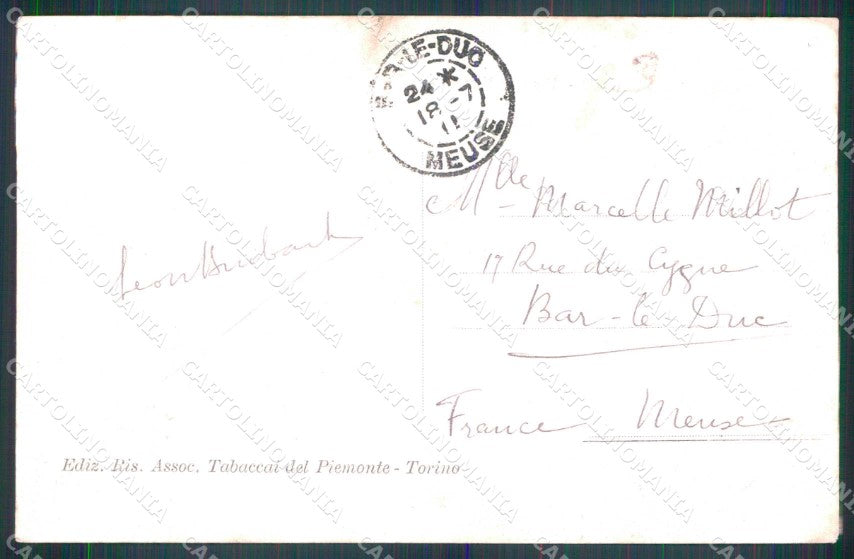 BAR-LE-DUC
24 *
18-7
11
MEUSE
Mlle Marcelle Millot
17 Rue du Cygne
Bar-le-Duc
France Meuse
Ediz. Ris. Assoc. Tabaccai del Piemonte - Torino
CARTOLINOMANIA